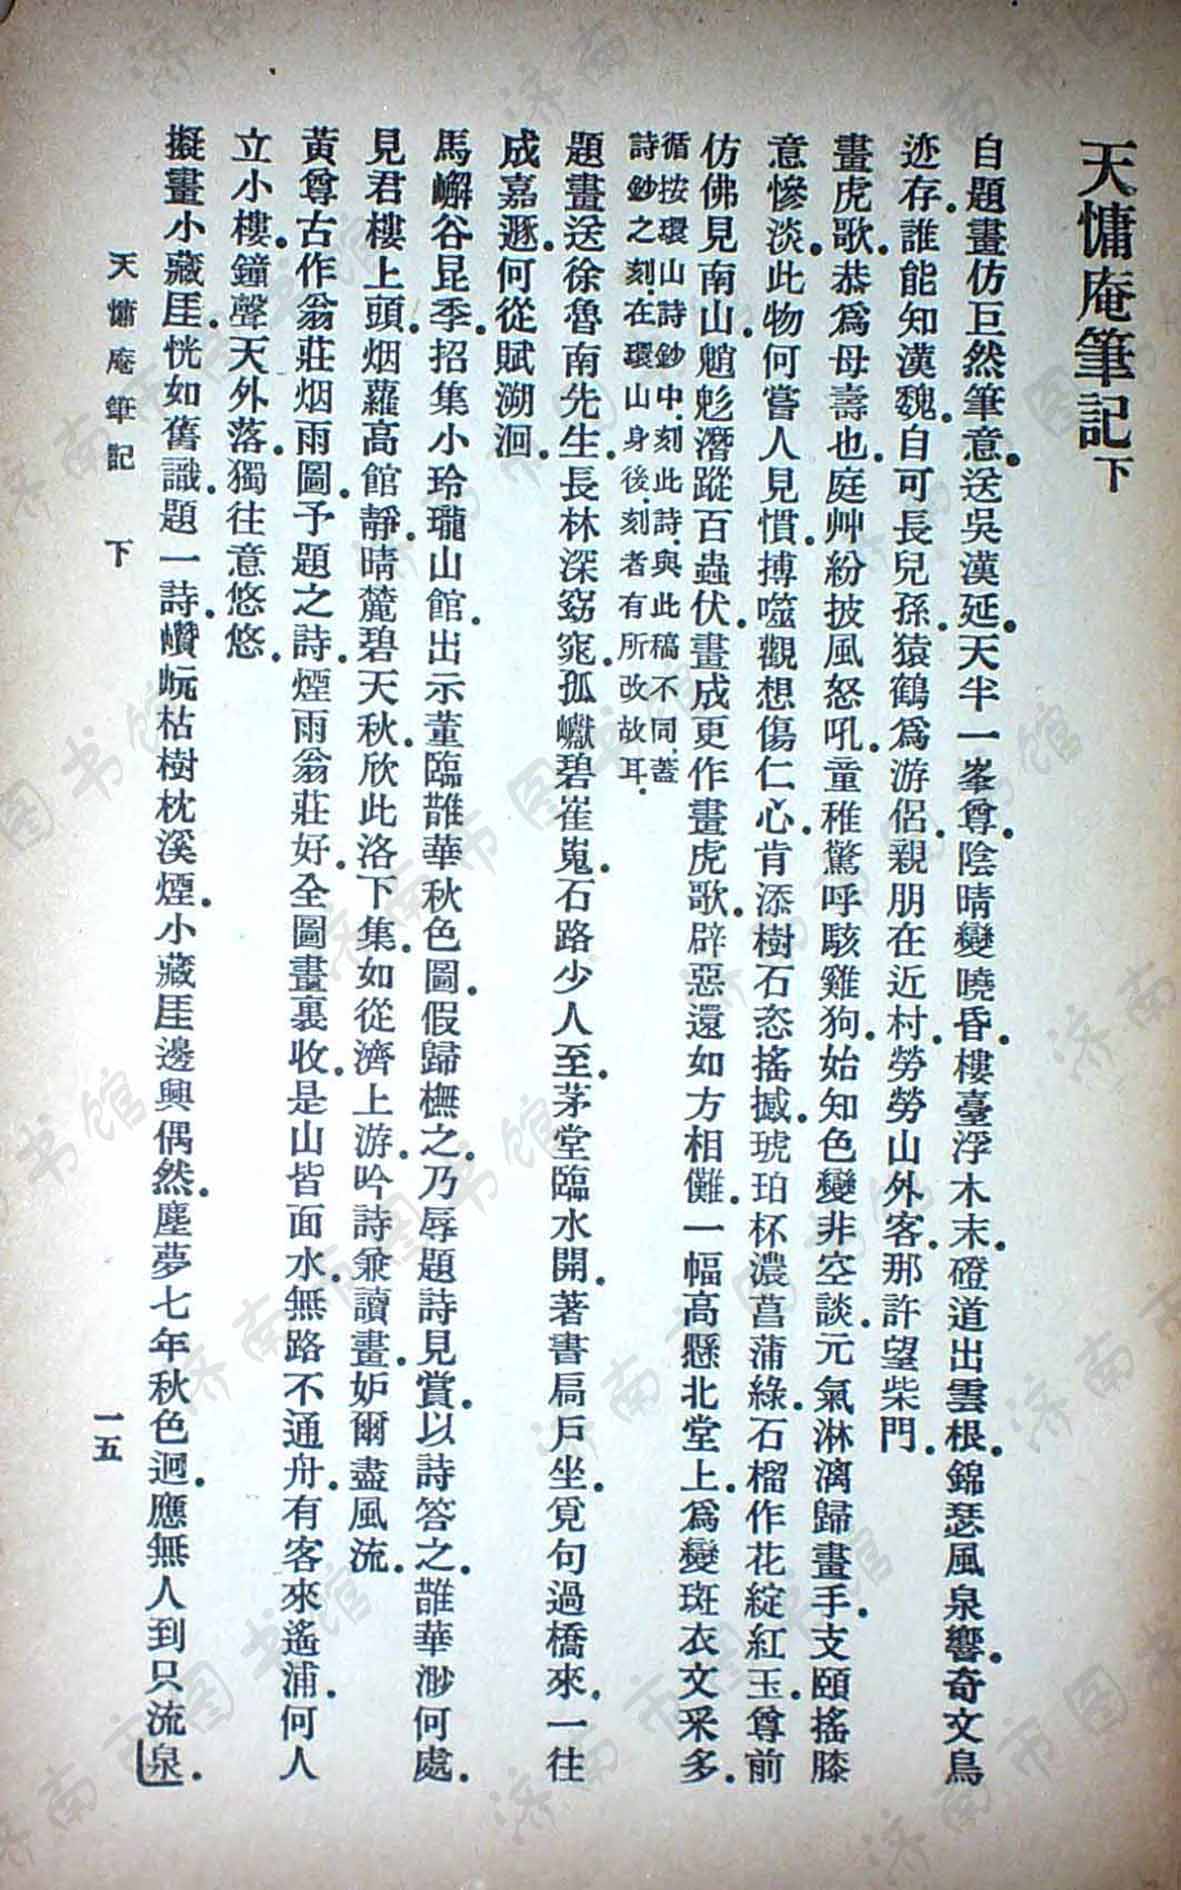 天慵庵筆記下
自題畫仿巨然筆意。送吳漢延。天半一峯尊。陰晴變曉昏。樓臺浮木末。磴道出雲根。錦瑟風泉響。奇文鳥
迹存。誰能知漢魏。自可長兒孫。猿鶴爲游侶。親朋在近村。勞勞山外客。那許望柴門。
畫虎歌。恭爲母壽也。庭艸紛披風怒吼。童稚驚呼駭雞狗。始知色變非空談。元氣淋漓歸畫手。支頤搖膝
意慘淡。此物何嘗人見慣。搏噬觀想傷仁心。肯添樹石恣搖撼。琥珀杯濃菖蒲綠。石榴作花綻紅玉。尊前
仿佛見南山。魈鬽潛蹤百蟲伏。畫成更作畫虎歌。辟惡還如方相儺。一幅高懸北堂上。爲變斑衣文采多。
循按環山詩鈔中。刻此詩。與此稿不同。蓋
詩鈔之刻。在環山身後。刻者有所改故耳。
題畫送徐魯南先生。長林深窈窕。孤巘碧崔嵬。石路少人至。茅堂臨水開。著書扃戶坐。覓句過橋來。一往
成嘉遯。何從賦溯洄。
馬嶰谷昆季。招集小玲瓏山館。出示董臨鵲華秋色圖。假歸橅之。乃辱題詩見賞。以詩答之。鵲華渺何處。
見君樓上頭。烟蘿高館靜。晴麓碧天秋。欣此洛下集。如從濟上游。吟詩兼讀畫。妒爾盡風流。
黃尊古作翁莊烟雨圖。予題之詩。煙雨翁莊好。全圖畫裏收。是山皆面水。無路不通舟。有客來遙浦。何人
立小樓。鐘聲天外落。獨往意悠悠。
擬畫小藏厓。恍如舊識。題一詩。巑岏枯樹枕溪煙。小藏厓邊興偶然。塵夢七年秋色迥。應無人到只流泉。
天慵庵筆記　下
一五
济南市图书馆